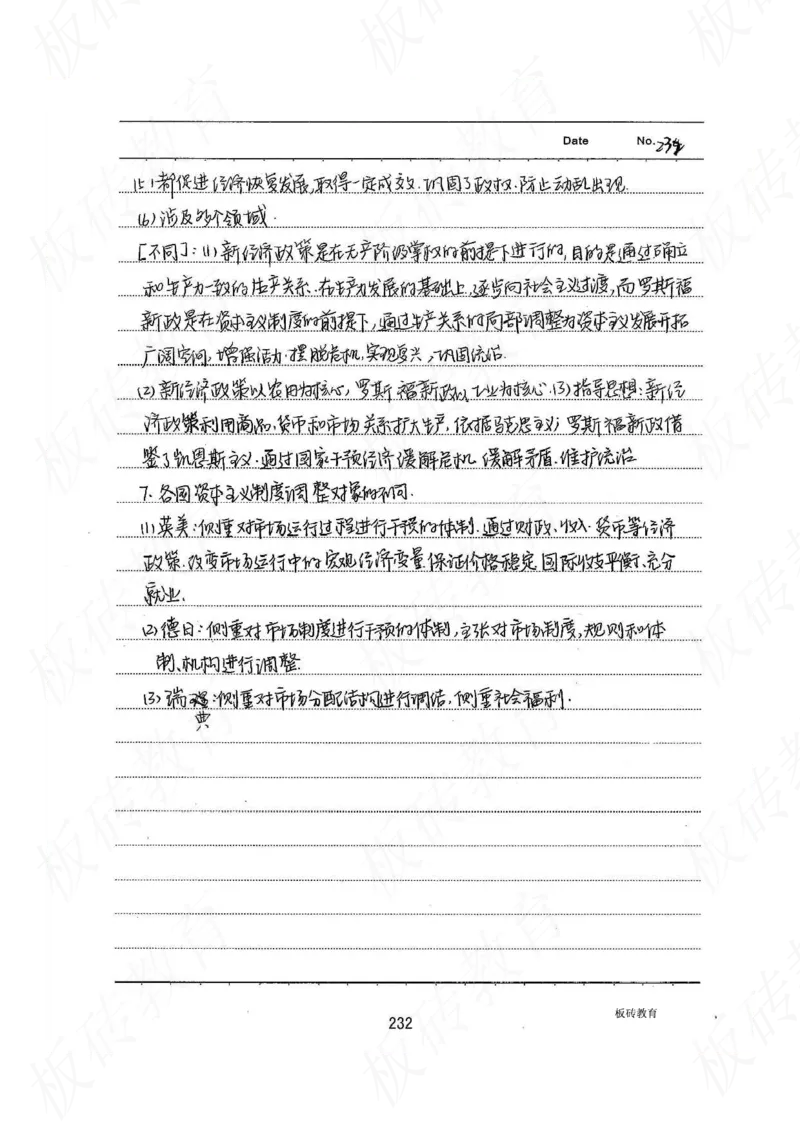 Date No. 234
(5)都促进经济恢复发展,取得一定成效.巩固了政权.防止动乱出现.
(6)涉及多个领域.
[不同]:(1)新经济政策是在无产阶级掌权的前提下进行的,目的是通过确立
和生产力一致的生产关系.在生产力发展的基础上,逐步向社会主义过渡,而罗斯福
新政是在资本主义制度的前提下,通过生产关系的局部调整为资本主义发展开拓
广阔空间,增强活力.摆脱危机,实现复兴,巩固统治.
(2)新经济政策以农田为核心,罗斯福新政以工业为核心.(3)指导思想:新经
济政策利用商品、货币和市场关系扩大生产,依据马克思主义;罗斯福新政借
鉴了凯恩斯主义.通过国家干预经济缓解危机 缓解矛盾.维护统治
7.各国资本主义制度调整对象的不同.
(1)英美:侧重对市场运行过程进行干预的体制.通过财政、收入.货币等经济
政策.改变市场运行中的宏观经济变量,保证价格稳定 国际收支平衡、充分
就业.
(2)德日:侧重对市场制度进行干预的体制,主张对市场制度,规则和体
制、机构进行调整.
(3)瑞典:侧重对市场分配结构进行调结,侧重社会福利.
232
板砖教育